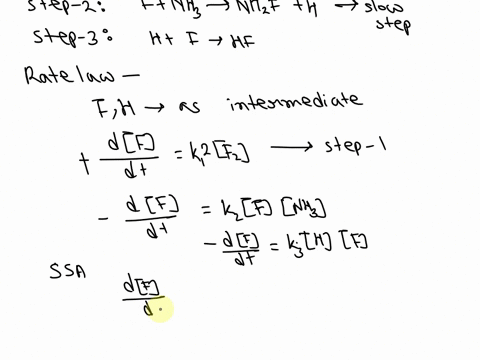 step-2: F+NH₃ → NH₂F + H → slow step
step-3: H+ F → HF
Rate law —
F, H → as intermediate
+ d[F]/dt = k₁2[F₂] → step-1
- d[F]/dt = k₂[F] [NH₃]
- d[F]/dt = k₃[H] [F]
SSA
d[F]/d